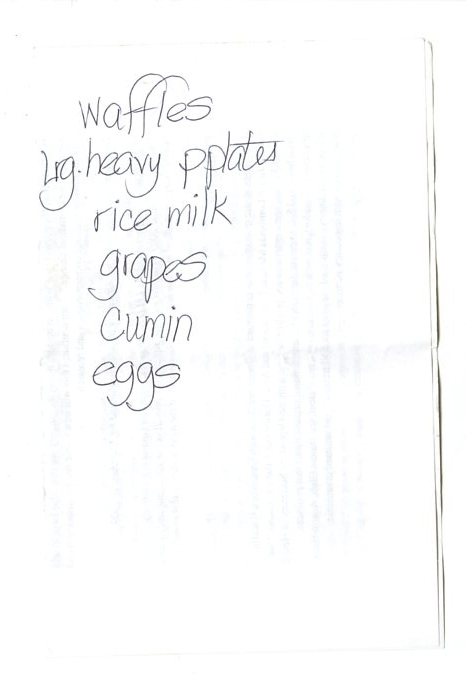 waffles
Lrg. heavy pplates
rice milk
grapes
Cumin
eggs